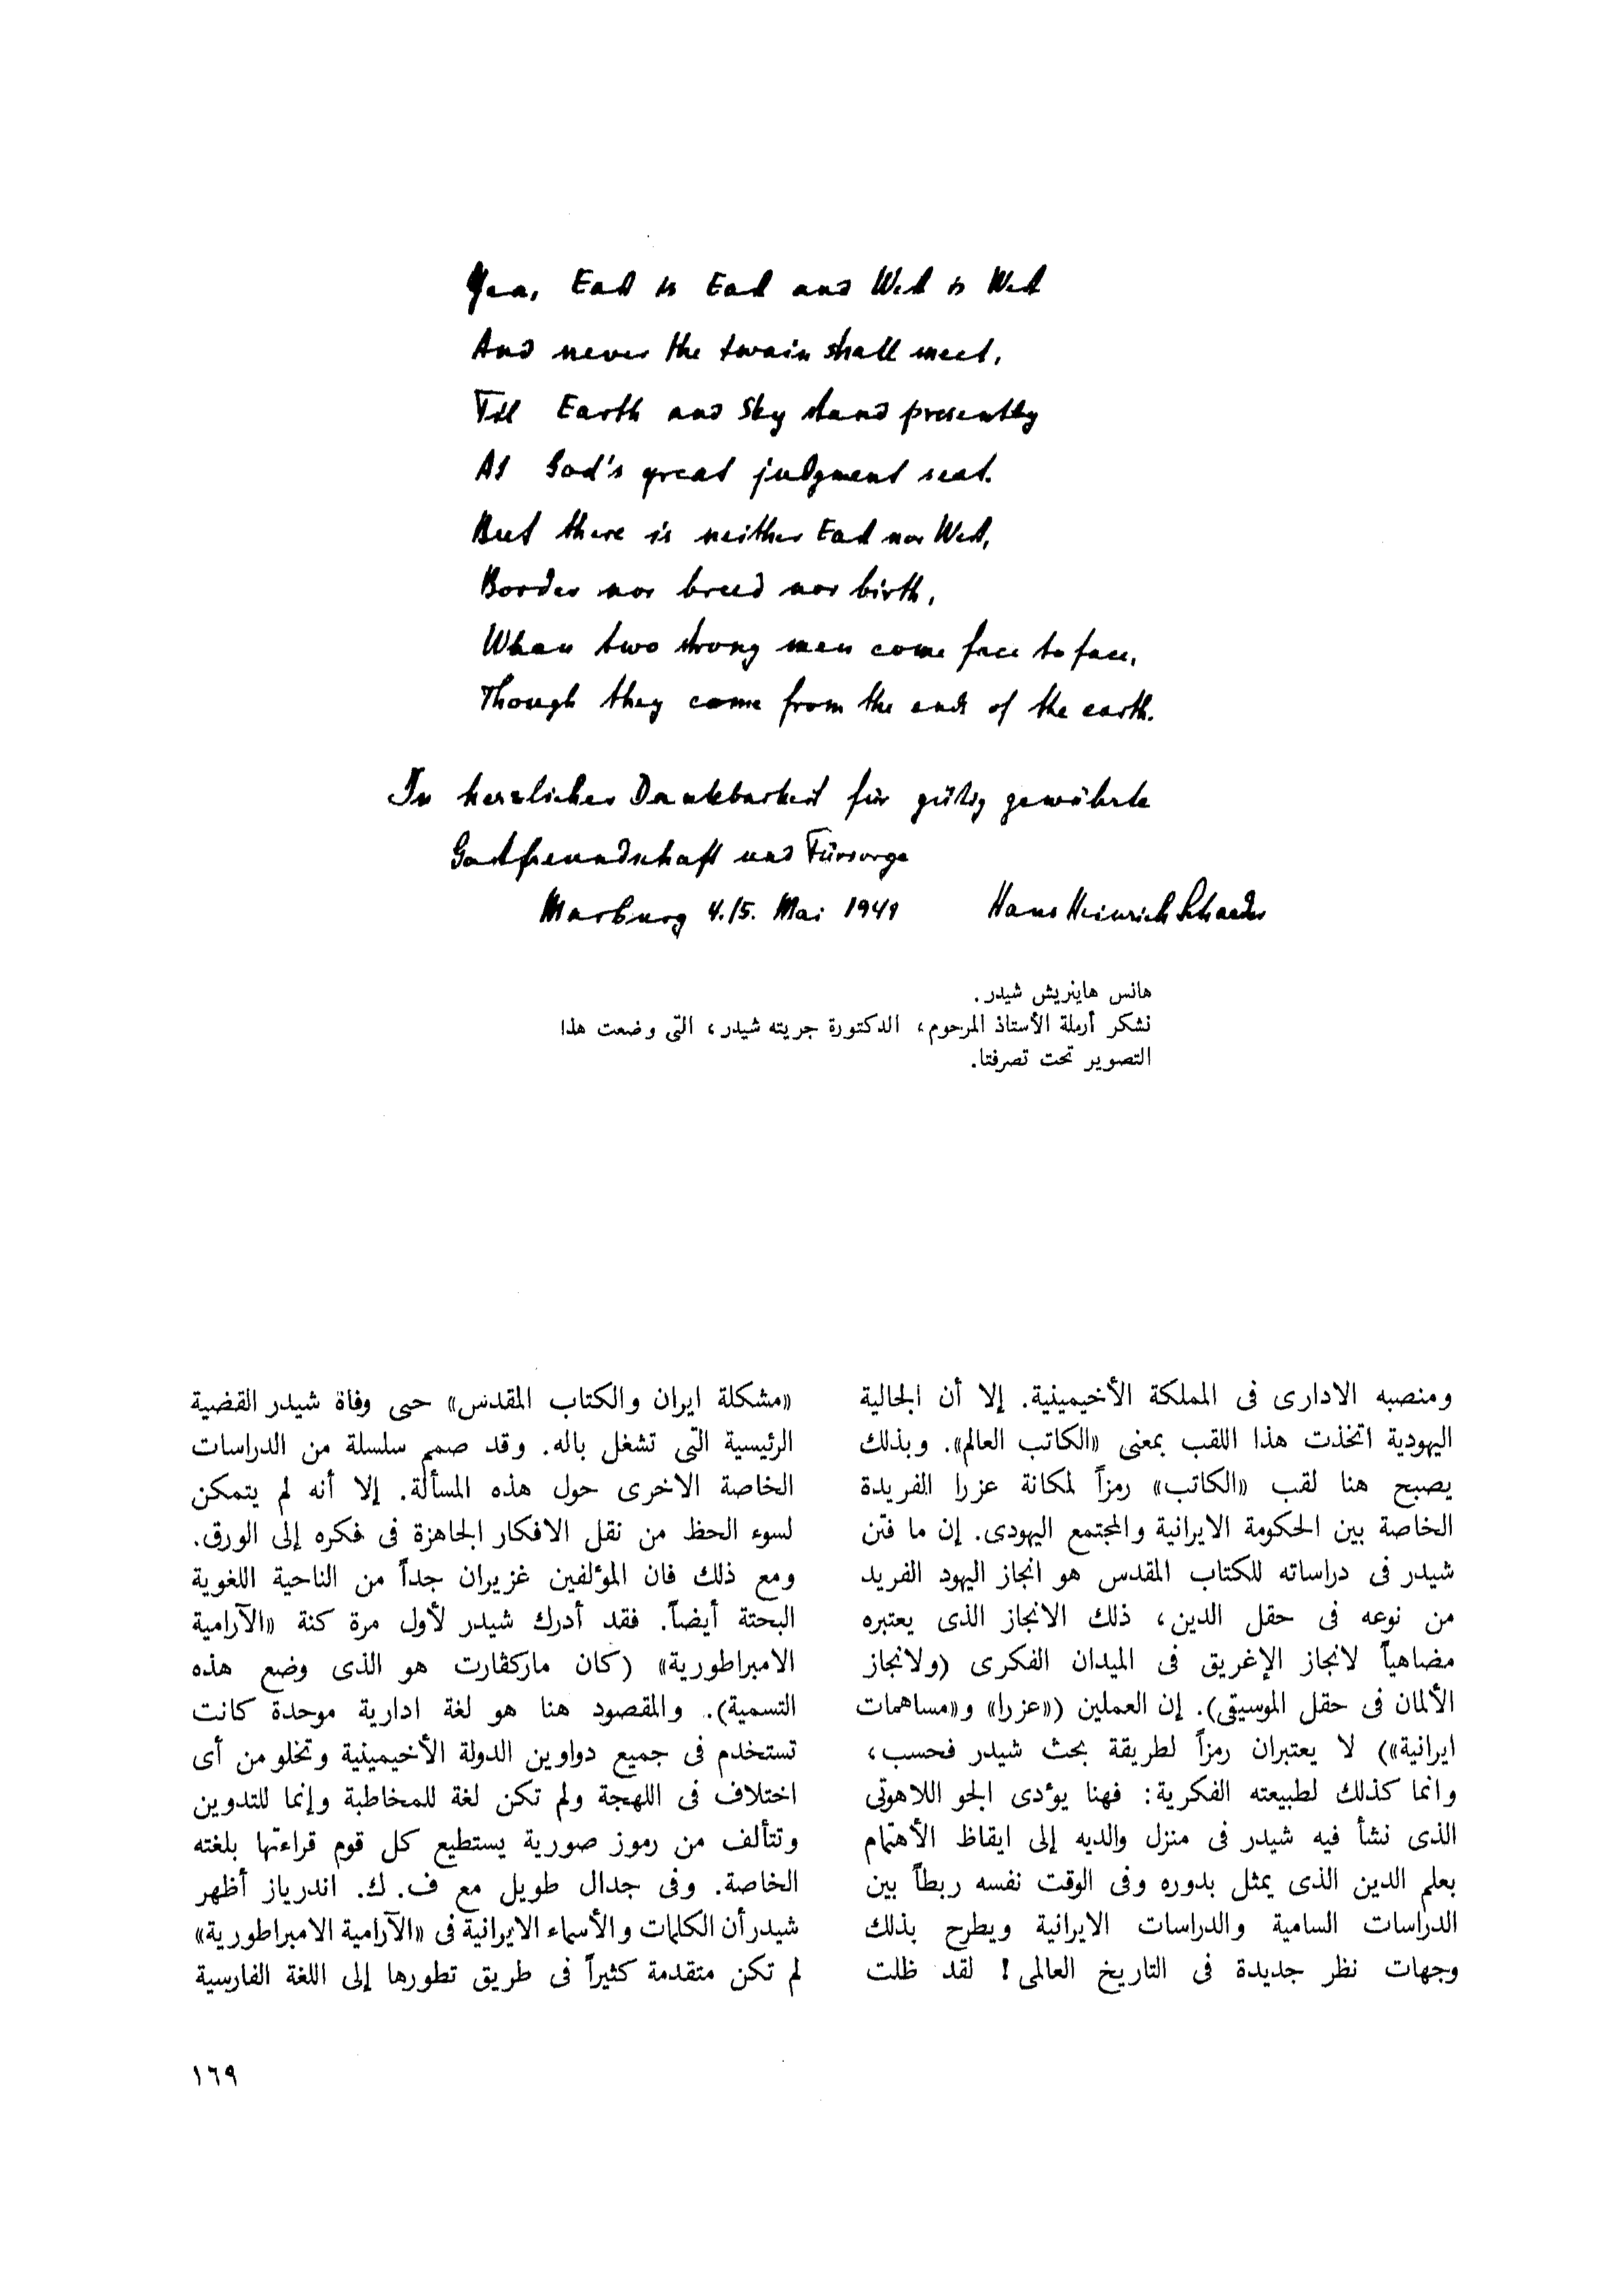 Yea, East is East and West is West
And never the twain shall meet,
Till Earth and Sky stand presently
At God's great judgment seat.
But there is neither East nor West,
Border nor breed nor birth,
When two strong men come face to face,
Though they come from the ends of the earth.
In herzlicher Dankbarkeit für gütig gewährte
Gastfreundschaft und Fürsorge
Marburg 4./5. Mai 1949 Hans Heinrich Schaeder
هانس هاينريش شيدر.
نشكر أرملة الأستاذ المرحوم، الدكتورة جريته شيدر، التى وضعت هذا
التصوير تحت تصرفتا.
ومنصبه الادارى فى المملكة الأخيمينية. إلا أن الجالية
اليهودية اتخذت هذا اللقب بمعنى «الكاتب العالم». وبذلك
يصبح هنا لقب «الكاتب» رمزاً لمكانة عزرا الفريدة
الخاصة بين الحكومة الايرانية والمجتمع اليهودى. إن ما فتن
شيدر فى دراساته للكتاب المقدس هو انجاز اليهود الفريد
من نوعه فى حقل الدين، ذلك الانجاز الذى يعتبره
مضاهياً لانجاز الإغريق فى الميدان الفكرى (ولانجاز
الألمان فى حقل الموسيقى). إن العملين («عزرا» و«مساهمات
ايرانية») لا يعتبران رمزاً لطريقة بحث شيدر فحسب،
وانما كذلك لطبيعته الفكرية: فهنا يؤدى الجو اللاهوتى
الذى نشأ فيه شيدر فى منزل والديه إلى ايقاظ الأهتمام
بعلم الدين الذى يمثل بدوره وفى الوقت نفسه ربطاً بين
الدراسات السامية والدراسات الايرانية ويطرح بذلك
وجهات نظر جديدة فى التاريخ العالمى! لقد ظلت
«مشكلة ايران والكتاب المقدس» حتى وفاة شيدر القضية
الرئيسية التى تشغل باله. وقد صمم سلسلة من الدراسات
الخاصة الاخرى حول هذه المسألة. إلا أنه لم يتمكن
لسوء الحظ من نقل الافكار الجاهزة فى فكره إلى الورق.
ومع ذلك فان المؤلفين غزيران جداً من الناحية اللغوية
البحتة أيضاً. فقد أدرك شيدر لأول مرة كنة «الآرامية
الامبراطورية» (كان ماركڤارت هو الذى وضع هذه
التسمية). والمقصود هنا هو لغة ادارية موحدة كانت
تستخدم فى جميع دواوين الدولة الأخيمينية وتخلو من أى
اختلاف فى اللهجة ولم تكن لغة للمخاطبة وإنما للتدوين
وتتألف من رموز صورية يستطيع كل قوم قراءتها بلغته
الخاصة. وفى جدال طويل مع ف. ك. اندرياز أظهر
شيدر أن الكلمات والأسماء الايرانية فى «الآرامية الامبراطورية»
لم تكن متقدمة كثيراً فى طريق تطورها إلى اللغة الفارسية
١٦٩